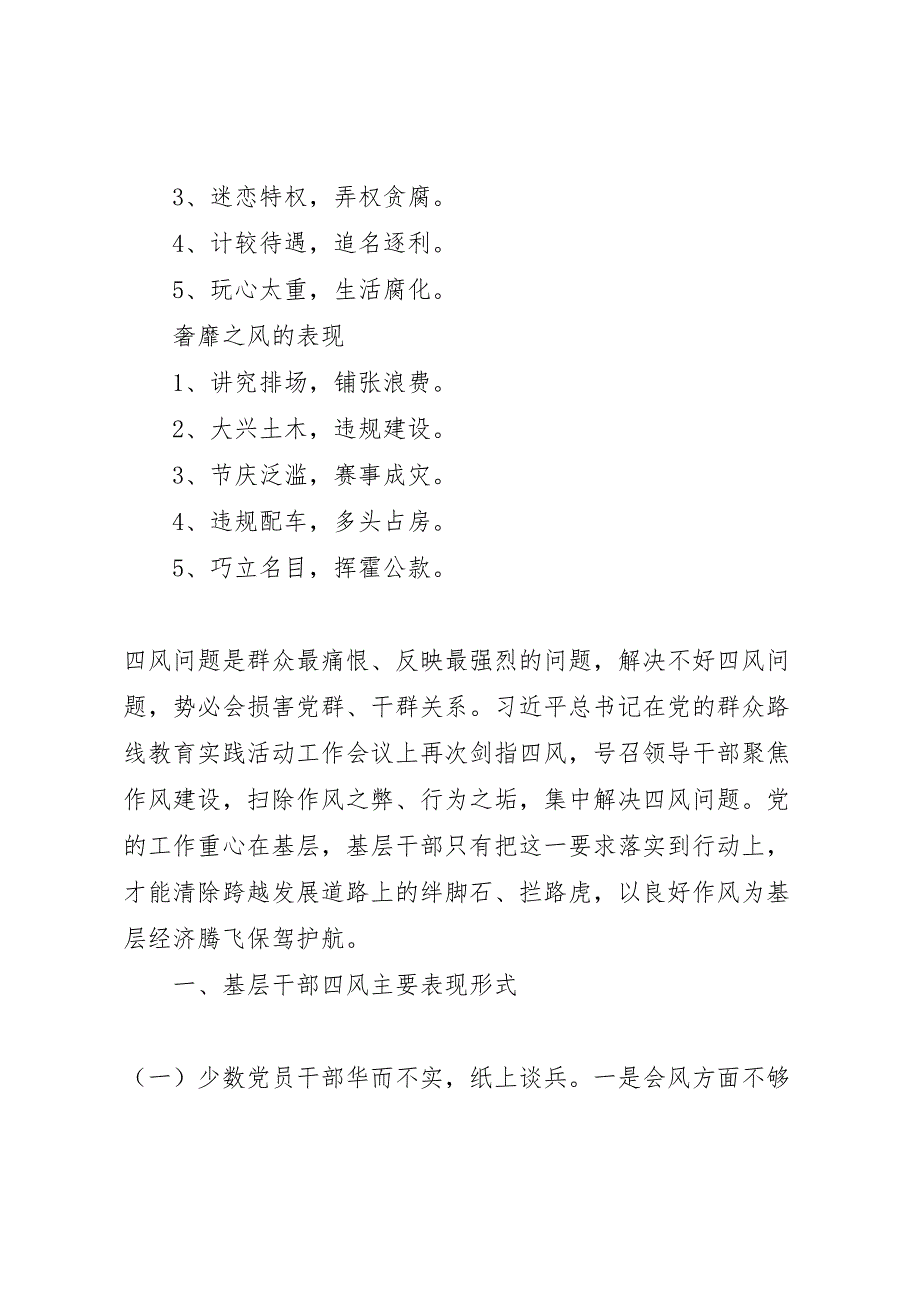 3、迷恋特权，弄权贪腐。
4、计较待遇，追名逐利。
5、玩心太重，生活腐化。
奢靡之风的表现
1、讲究排场，铺张浪费。
2、大兴土木，违规建设。
3、节庆泛滥，赛事成灾。
4、违规配车，多头占房。
5、巧立名目，挥霍公款。
四风问题是群众最痛恨、反映最强烈的问题，解决不好四风问
题，势必会损害党群、干群关系。习近平总书记在党的群众路
线教育实践活动工作会议上再次剑指四风，号召领导干部聚焦
作风建设，扫除作风之弊、行为之垢，集中解决四风问题。党
的工作重心在基层，基层干部只有把这一要求落实到行动上，
才能清除跨越发展道路上的绊脚石、拦路虎，以良好作风为基
层经济腾飞保驾护航。
一、基层干部四风主要表现形式
（一）少数党员干部华而不实，纸上谈兵。一是会风方面不够